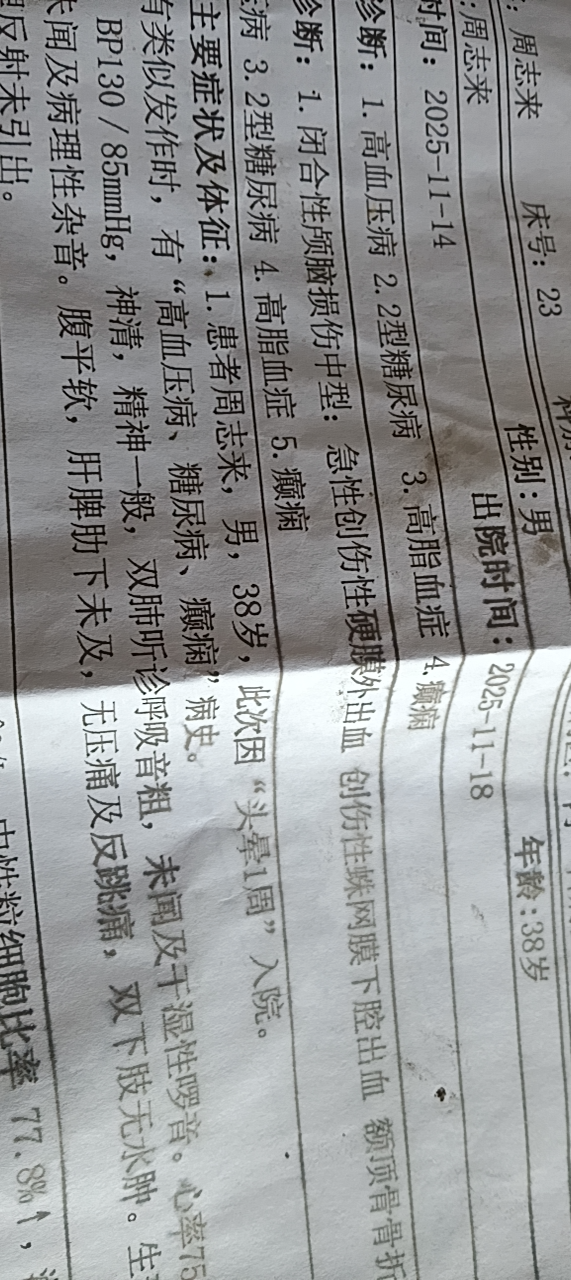 ：周志来 床号：23
科别
：周志来 性别：男 年龄：38岁
时间：2025-11-14 出院时间：2025-11-18
诊断：1.高血压病 2.2型糖尿病 3.高脂血症 4.癫痫
诊断：1.闭合性颅脑损伤中型：急性创伤性硬膜外出血 创伤性蛛网膜下腔出血 额顶骨骨折
病 3.2型糖尿病 4.高脂血症 5.癫痫
主要症状及体征：1.患者周志来，男，38岁，此次因“头晕1周”入院。
有类似发作时，有“高血压病、糖尿病、癫痫”病史。
BP130/85mmHg，神清，精神一般，双肺听诊呼吸音粗，未闻及干湿性啰音。心率75
未闻及病理性杂音。腹平软，肝脾肋下未及，无压痛及反跳痛，双下肢无水肿。生
理反射未引出。
中性粒细胞比率 77.8%↑，